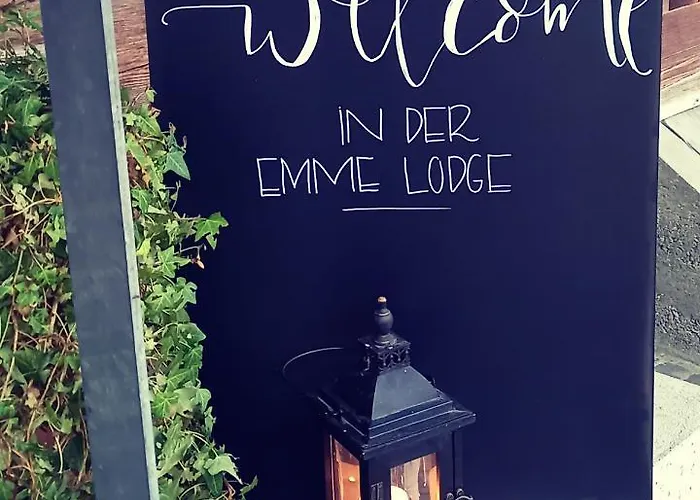 Welcome
IN DER
EMME LODGE